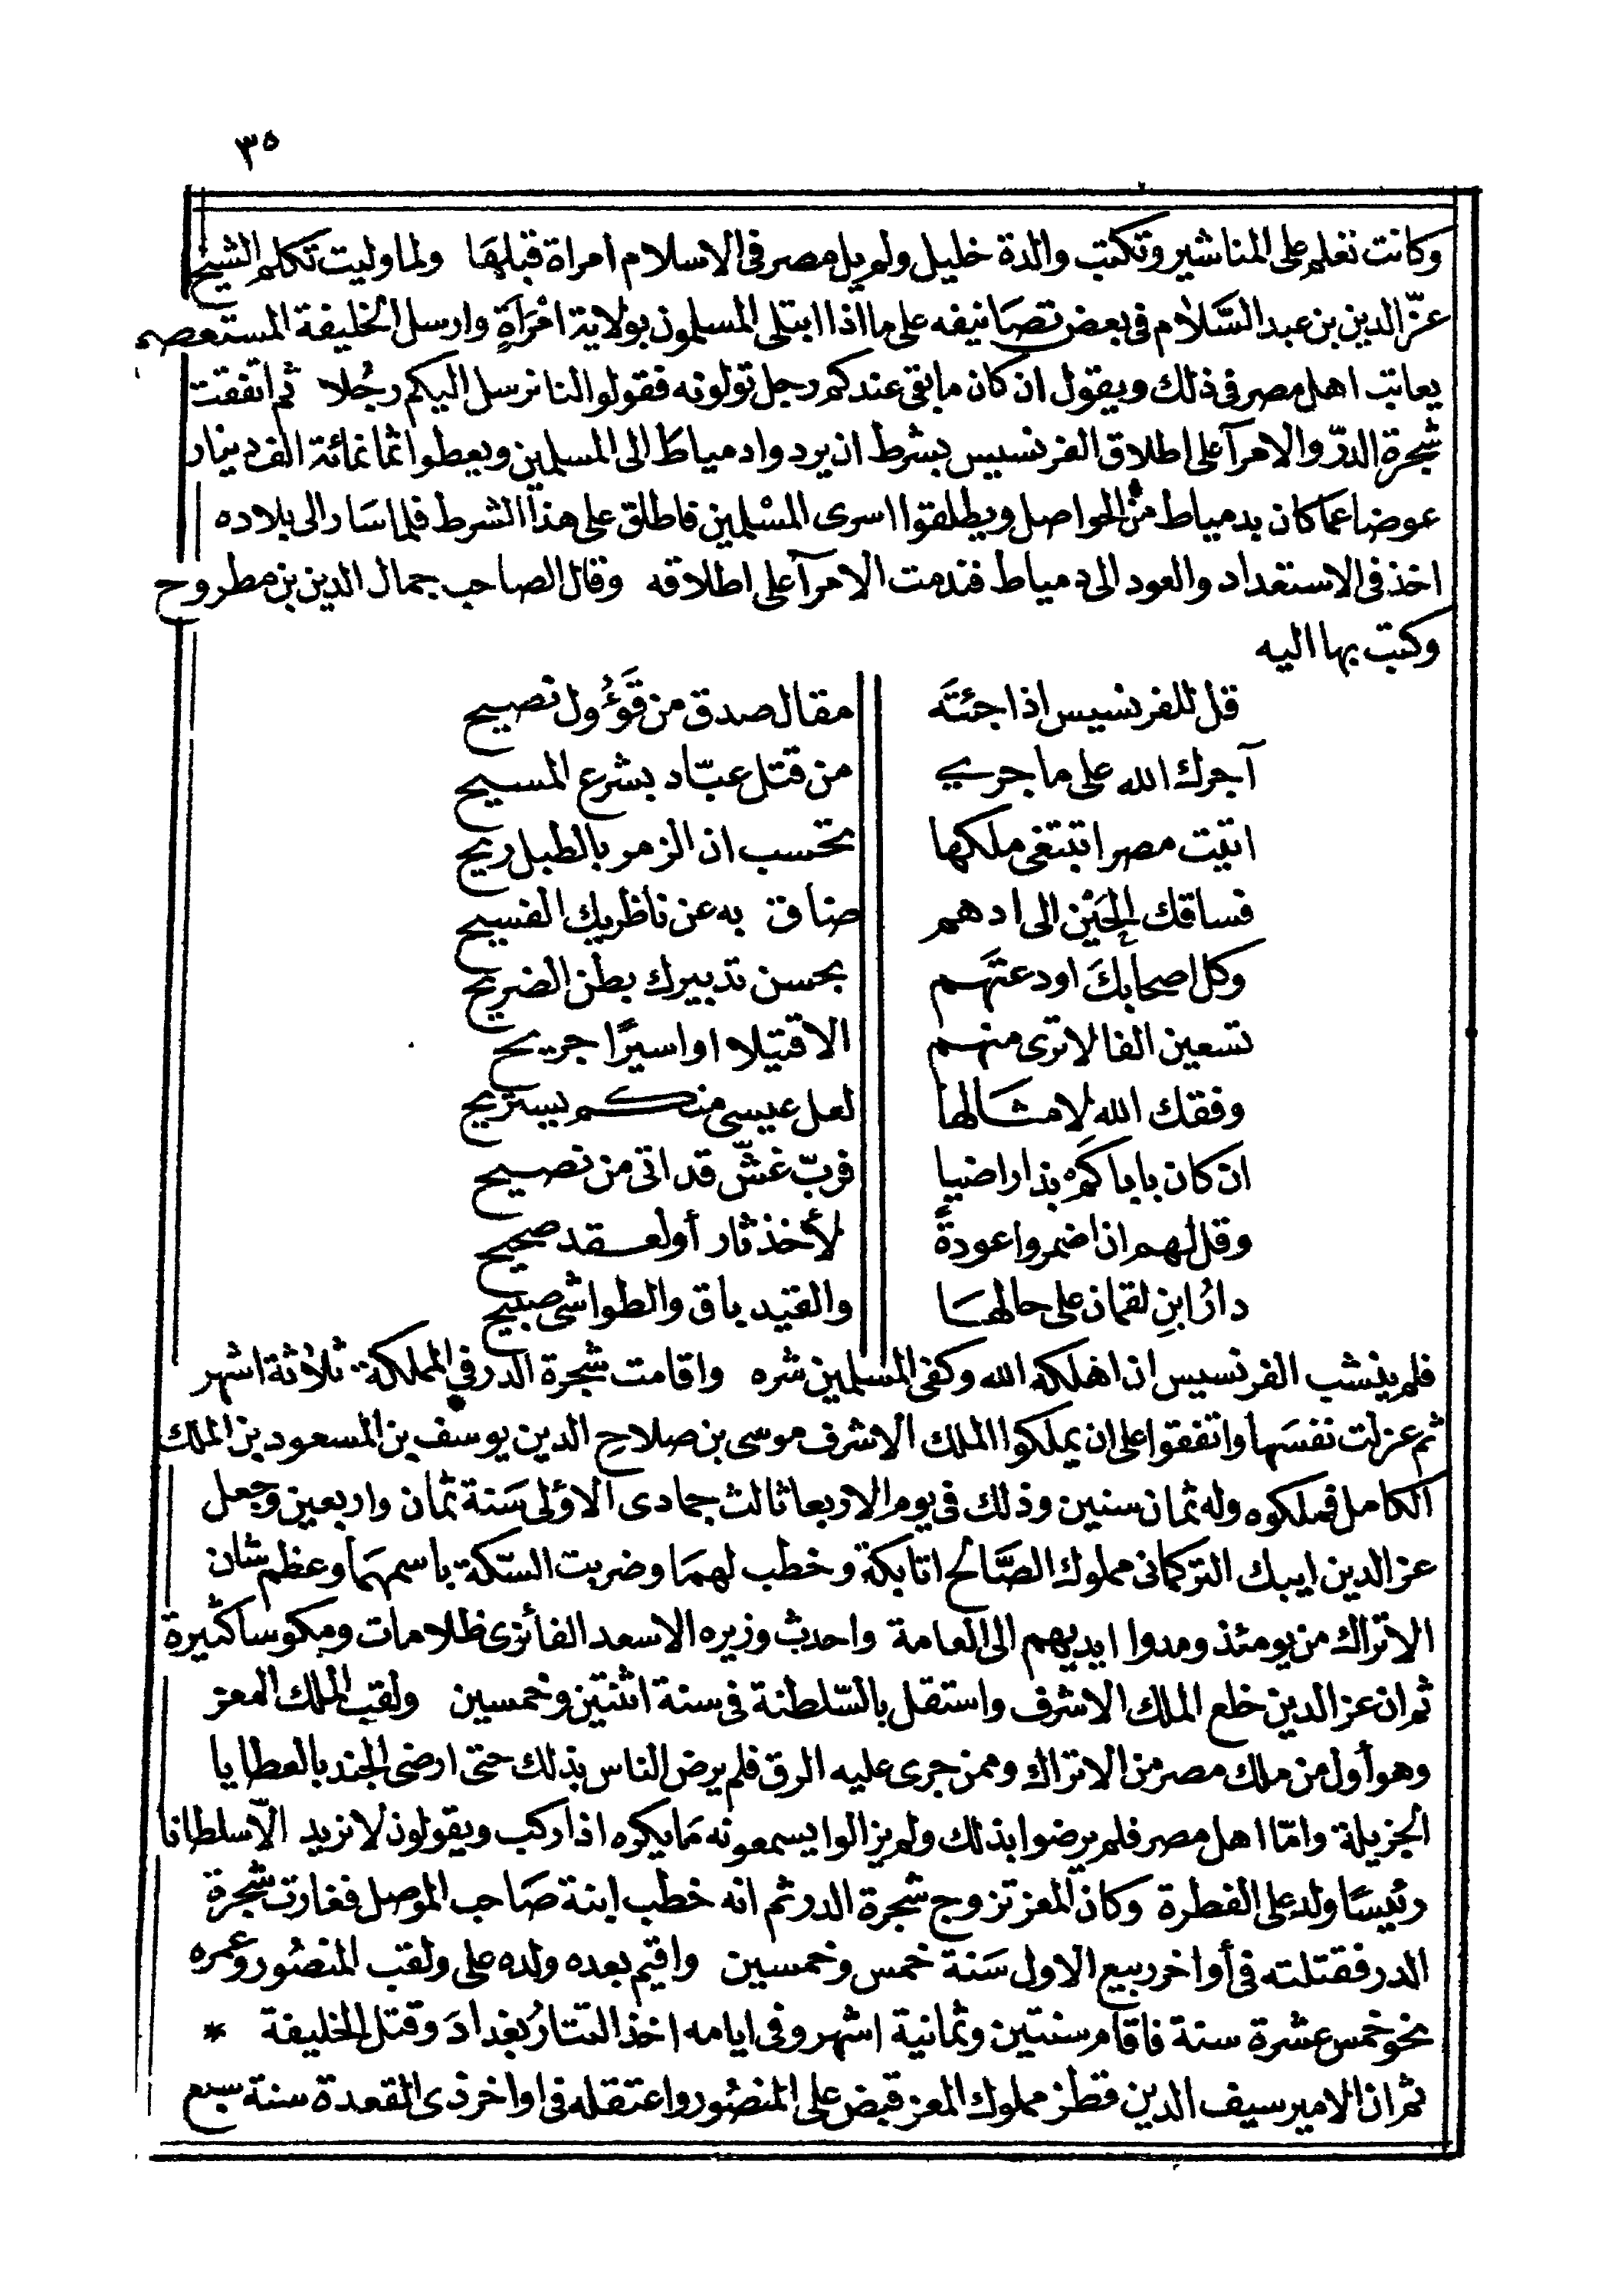 ٣٥
وكانت تعلم على المناشير وتكتب والدة خليل ولم يل مصر فى الاسلام امراة قبلهَا ولما وليت تكلم الشيخ
عزّ الدين بن عبد السَّلام فى بعض تصَانيفه على ما اذا ابتلى المسلمون بولاية امْرَاةٍ وارسل الخليفة المستعصم
يعاتب اهل مصر فى ذلك ويقول ان كان ما بقى عندكم رجل تولونه فقولوا لنا نرسل اليكم رجُلا ثم اتفقت
شجرة الدرّ والامرآ على اطلاق الفرنسيس بشرط ان يردوا دمياط الى المسلمين ويعطوا ثمانمائة الف دينار
عوضا عما كان بدمياط من الحواصل ويطلقوا اسرى المسْلمين فاطلق على هذا الشرط فلما سَار الى بلاده
اخذ فى الاستعداد والعود الى دمياط فندمت الامرآ على اطلاقه وقال الصاحب جمال الدين بن مطروح
وكتب بها اليه
قل للفرنسيس اذا جئتَه مقال صدق من قَوُول نصيح
آجرك الله على ما جرى من قتل عبّاد بشرع المسيح
اتيت مصرا تبتغى ملكها تحسب ان الزمر بالطبل ريح
فساقك الحَيْن الى ادهم ضاق به عن ناظريك الفسيح
وكل اصحابكَ اودعتَهم بحسن تدبيرك بطن الضريح
تسعين الفا لا ترى منهم الا قتيلا او اسيرًا جريح
وفقك الله لامثَالها لعل عيسى منكم يستريح
ان كان باباكمْ بذا راضيا فربّ غشّ قد اتى من نصيح
وقل لهم ان اضمروا عودةً لأخذ ثار أو لعقد صحيح
دارُ ابنِ لقمان على حالهَا والقيد باق والطواشى صبيح
فلم ينشب الفرنسيس ان اهلكه الله وكفى المسلمين شره واقامت شجرة الدر فى المملكة ثلاثة اشهر
ثم عزلت نفسَها واتفقوا على ان يملكوا الملك الاشرف موسى بن صلاح الدين يوسف بن المسعود بن الملك
الكامل فملكوه وله ثمان سنين وذلك فى يوم الاربعا ثالث جمادى الاولى سَنة ثمان واربعين وجعل
عز الدين ايبك التركمانى مملوك الصَّالح اتابكة وخطب لهمَا وضربت السّكة باسمهمَا وعظم شان
الاتراك من يومئذ ومدوا ايديهم الى العامة واحدث وزيره الاسعد الفائزى ظلامات ومكوسا كثيرة
ثم ان عز الدين خلع الملك الاشرف واستقل بالسّلطنة فى سنة اثنتين وخمسين ولقب الملك المعز
وهو أول من ملك مصر من الاتراك وممن جرى عليه الرق فلم يرض الناس بذلك حتى ارضى الجند بالعطايا
الجزيلة وامّا اهل مصر فلم يرضوا بذلك ولم يزالوا يسمعونه مَا يكره اذا ركب ويقولون لا نريد الّا سلطانا
رئيسًا ولد على الفطرة وكان المعز تزوج شجرة الدر ثم انه خطب ابنة صَاحب الموصل فغارت شجرة
الدر فقتلته فى أواخر ربيع الاول سَنة خمس وخمسين واقيم بعده ولده على ولقب المنصُور وعمره
نحو خمس عشرة سنة فاقام سنتين وثمانية اشهر وفى ايامه اخذ التتارُ بغدادَ وقتل الخليفة *
ثم ان الامير سيف الدين قطز مملوك المعز قبض على المنصُور واعتقله فى اواخر ذى القعدة سنة سبع